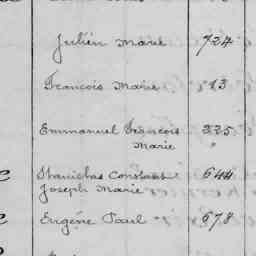 Julien Marie 724
François Marie 13
Emmanuel François 225
Marie "
Stanislas Constant 644
Joseph Marie
Eugène Paul 678